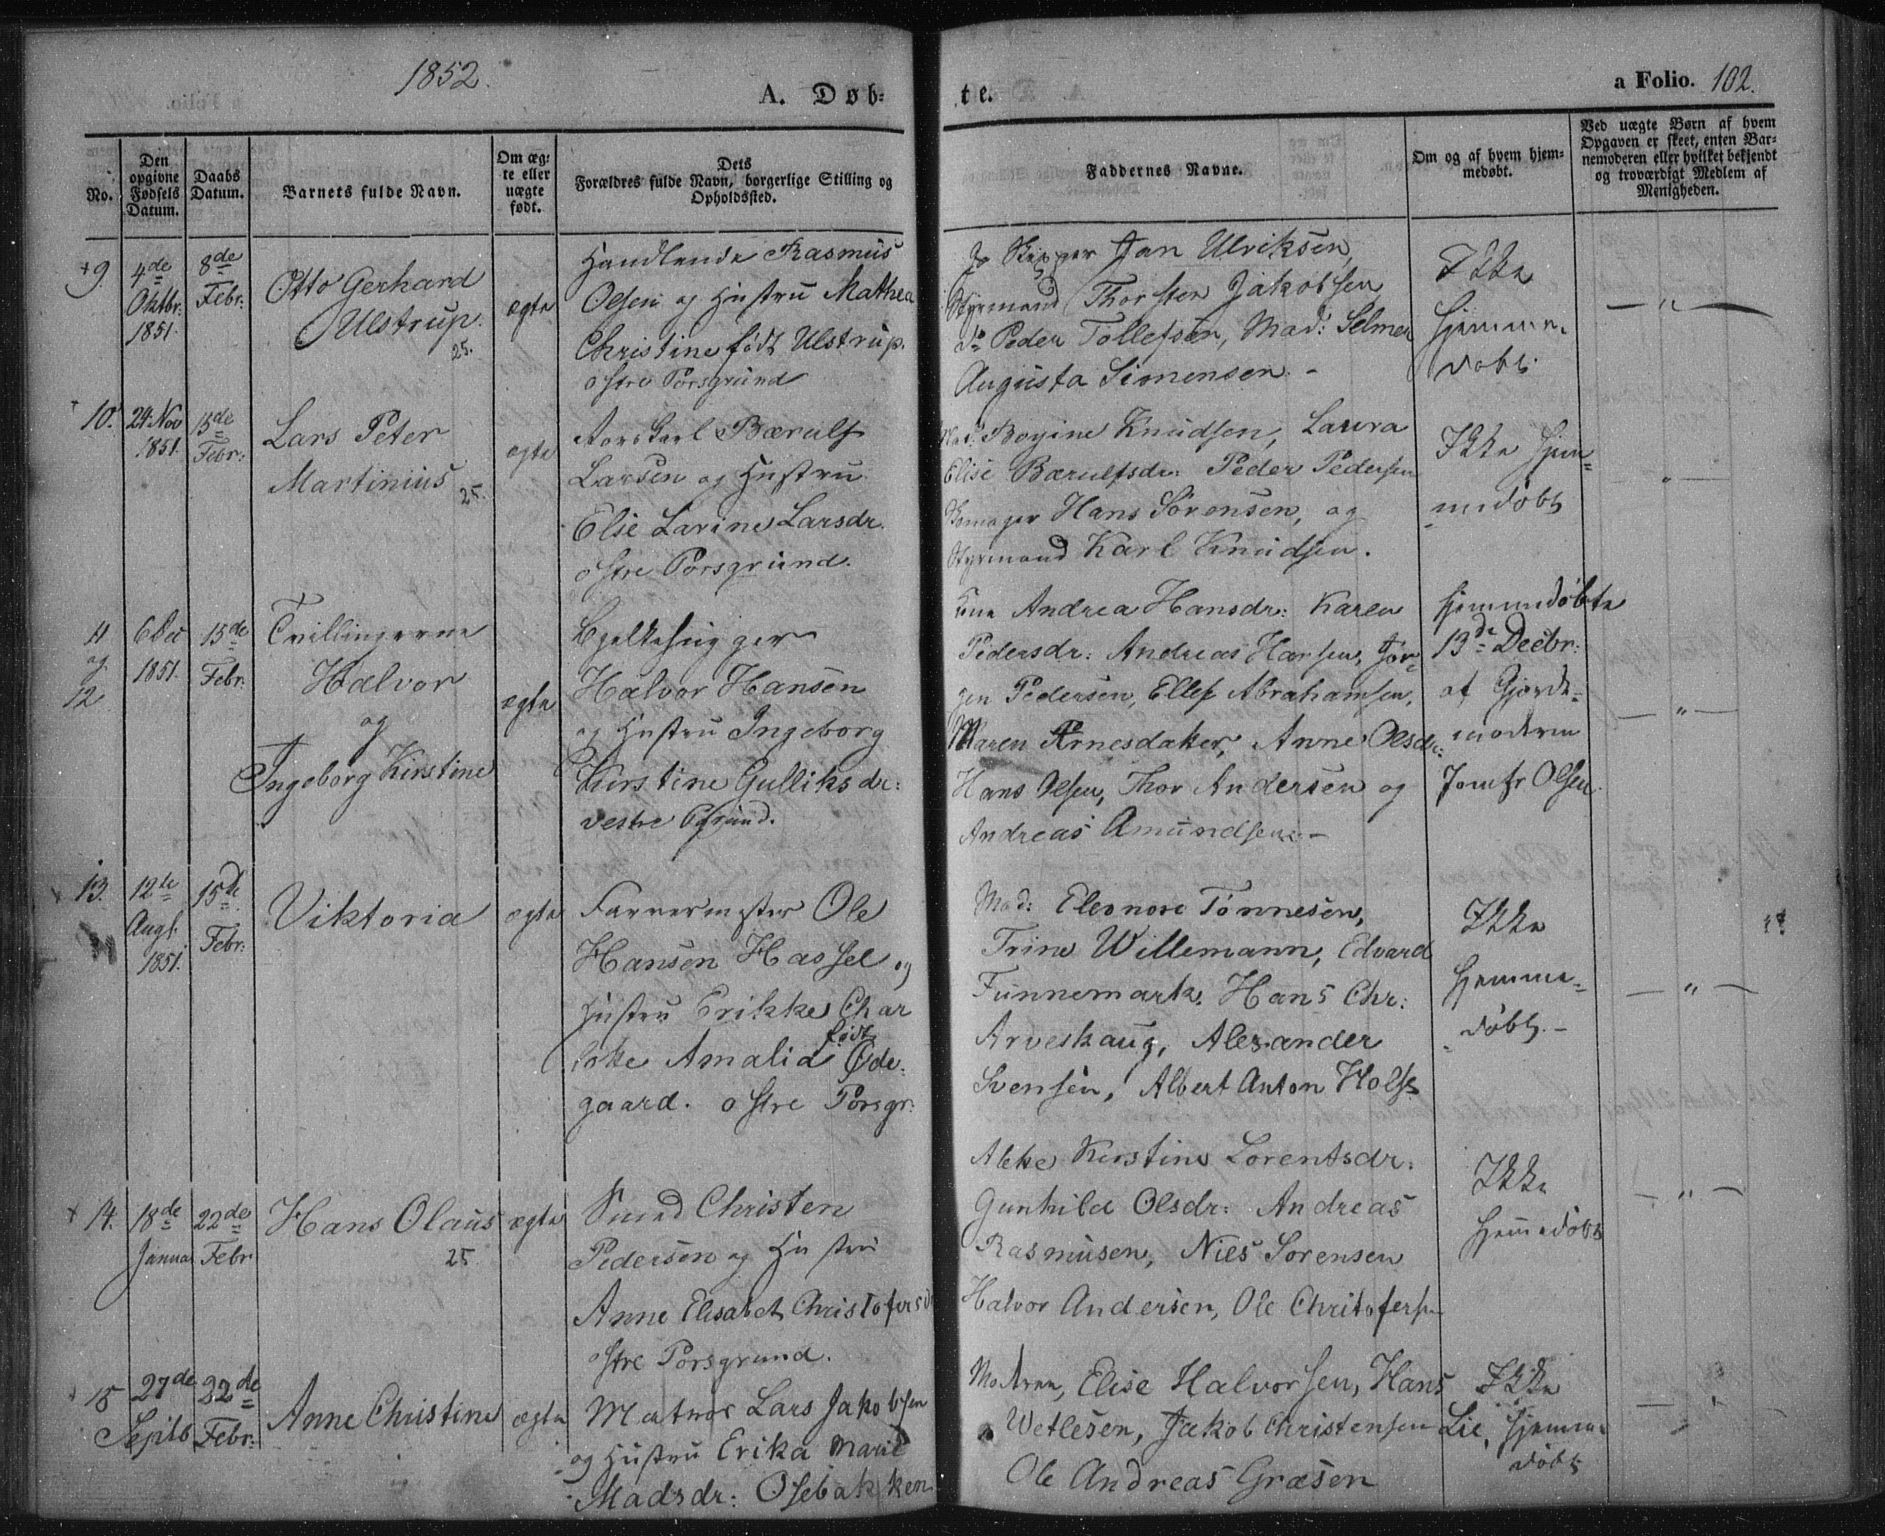 1852.
A. Døb-
te.
a Folio. 102.
No.
Den opgivne Fødsels Datum.
Daabs Datum.
Barnets fulde Navn.
Om æg-
te eller
uægte
født.
Dets
Forældres fulde Navn, borgerlige Stilling og
Opholdssted.
Faddernes Navne.
Om og af hvem hjem-
medøbt.
Ved uægte Børn af hvem
Opgaven er skeet, enten Bar-
nemoderen eller hvilket bekjendt
og troværdigt Medlem af
Menigheden.
9.
4de
Oktbr:
1851.
8de
Febr:
Otto Gerhard
Ulstrup.
25.
ægte
Handlende Rasmus
Olsen og Hustru Mathea
Christine født Ulstrup.
østre Porsgrund
Skipper Jan Ulriksen,
Styrmand Thorsten Jakobsen
do Peder Tollefsen, Mad: Selmer
Augusta Simonsen.-
Ikke
hjemme-
døbt.
— " —
10.
24. Nov
1851.
15de
Febr:
Lars Peter
Martinius
25.
ægte
Larsen og Hustru
Elise Larine Larsdr.
østre Porsgrund.
Mad: Knudsen, Laura
Elise Bærulfsdr: Peder Pedersen
Hans Sørensen, og
Styrmand Karl Knudsen.
Ikke hjem-
medøbt
— " —
11
og
12
6 Dec
1851.
15de
Febr:
Tvillingerne
Halvor
og
Ingeborg Kirstine
ægte
Bjelkehugger
Halvor Hansen
og Hustru Ingeborg
Kirstine Gulliksdr:
vestre Pgrund.
Kone Andrea Hansdr: Karen
Pedersdr: Andreas Hansen, Jør-
gen Pedersen, Ellef Abrahamsen,
Maren Arnesdaker, Anne Olsdr:
Hans Olsen, Thor Andersen og
Andreas Amundsen.-
hjemmedøbte
13de Decbr:
af Gjorde-
moderen
Jomfr Olsen.
— " —
13.
12te
Augt.
1851.
15de
Febr:
Viktoria
ægte
Farvermester Ole
Hansen Hassel og
Hustru Erikke Char
lotte Amalia født Øde-
gaard. østre Porsgr:
Mad: Eleonore Tønnesen,
Trine Willemann, Edvard
Funnemark, Hans Chr:
Arveskaug, Alexander
Svensen, Albert Anton Holst
Ikke
hjemme-
døbt.-
— " —
14.
18de
Januar
22de
Febr
Hans Olaus
25.
ægte
Smed Christen
Pedersen og Hustru
Anne Elisabet Christofersdr
østre Porsgrund.
Kirstine Lorentsdr:
Gunhild Olsdr: Andreas
Rasmusen, Niels Sørensen
Halvor Andersen, Ole Christofersen
Ikke
hjemmedøbt
— " —
15
27de
Septb
22de
Febr:
Anne Christine
ægte
Matros Lars Jakobsen
og Hustru Erika Marie
Madsdr: Osebakken
Moderen, Elise Halvorsen, Hans
Wetlesen, Jakob Christensen Lie,
Ole Andreas Græsen
Ikke
hjemme-
døbt
— " —